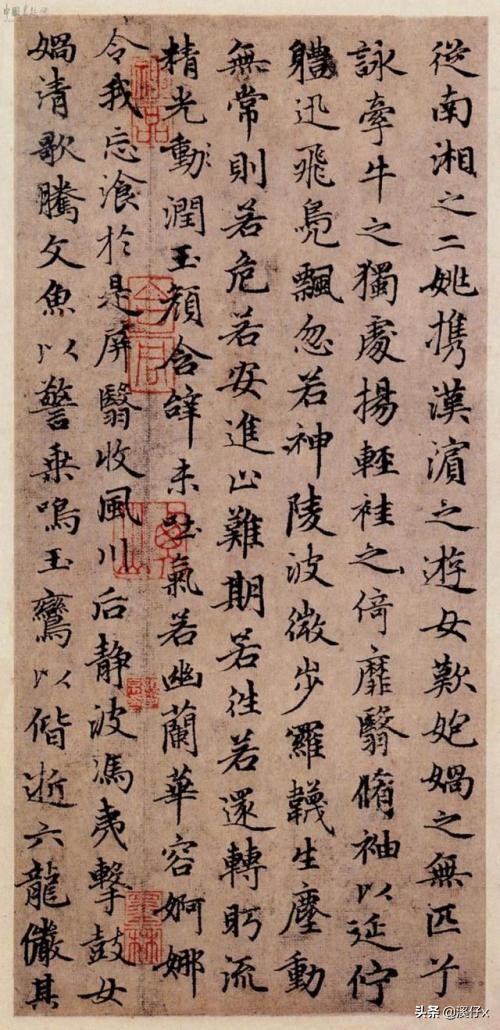 從南湘之二姚携漢濵之遊女歎㚿媧之無匹兮
詠牽牛之獨處揚輕袿之倚靡翳脩袖以延佇
軆迅飛鳧飄忽若神陵波微步羅韈生塵動
無常則若危若安進止難期若往若還轉眄流
精光動潤玉顏含辝未吐氣若幽蘭華容婀娜
令我忘飡於是屏翳收風川后靜波馮夷擊鼓女
媧清歌騰文魚以警乗鳴玉鸞以偕逝六龍儼其
头条 @溪仔x